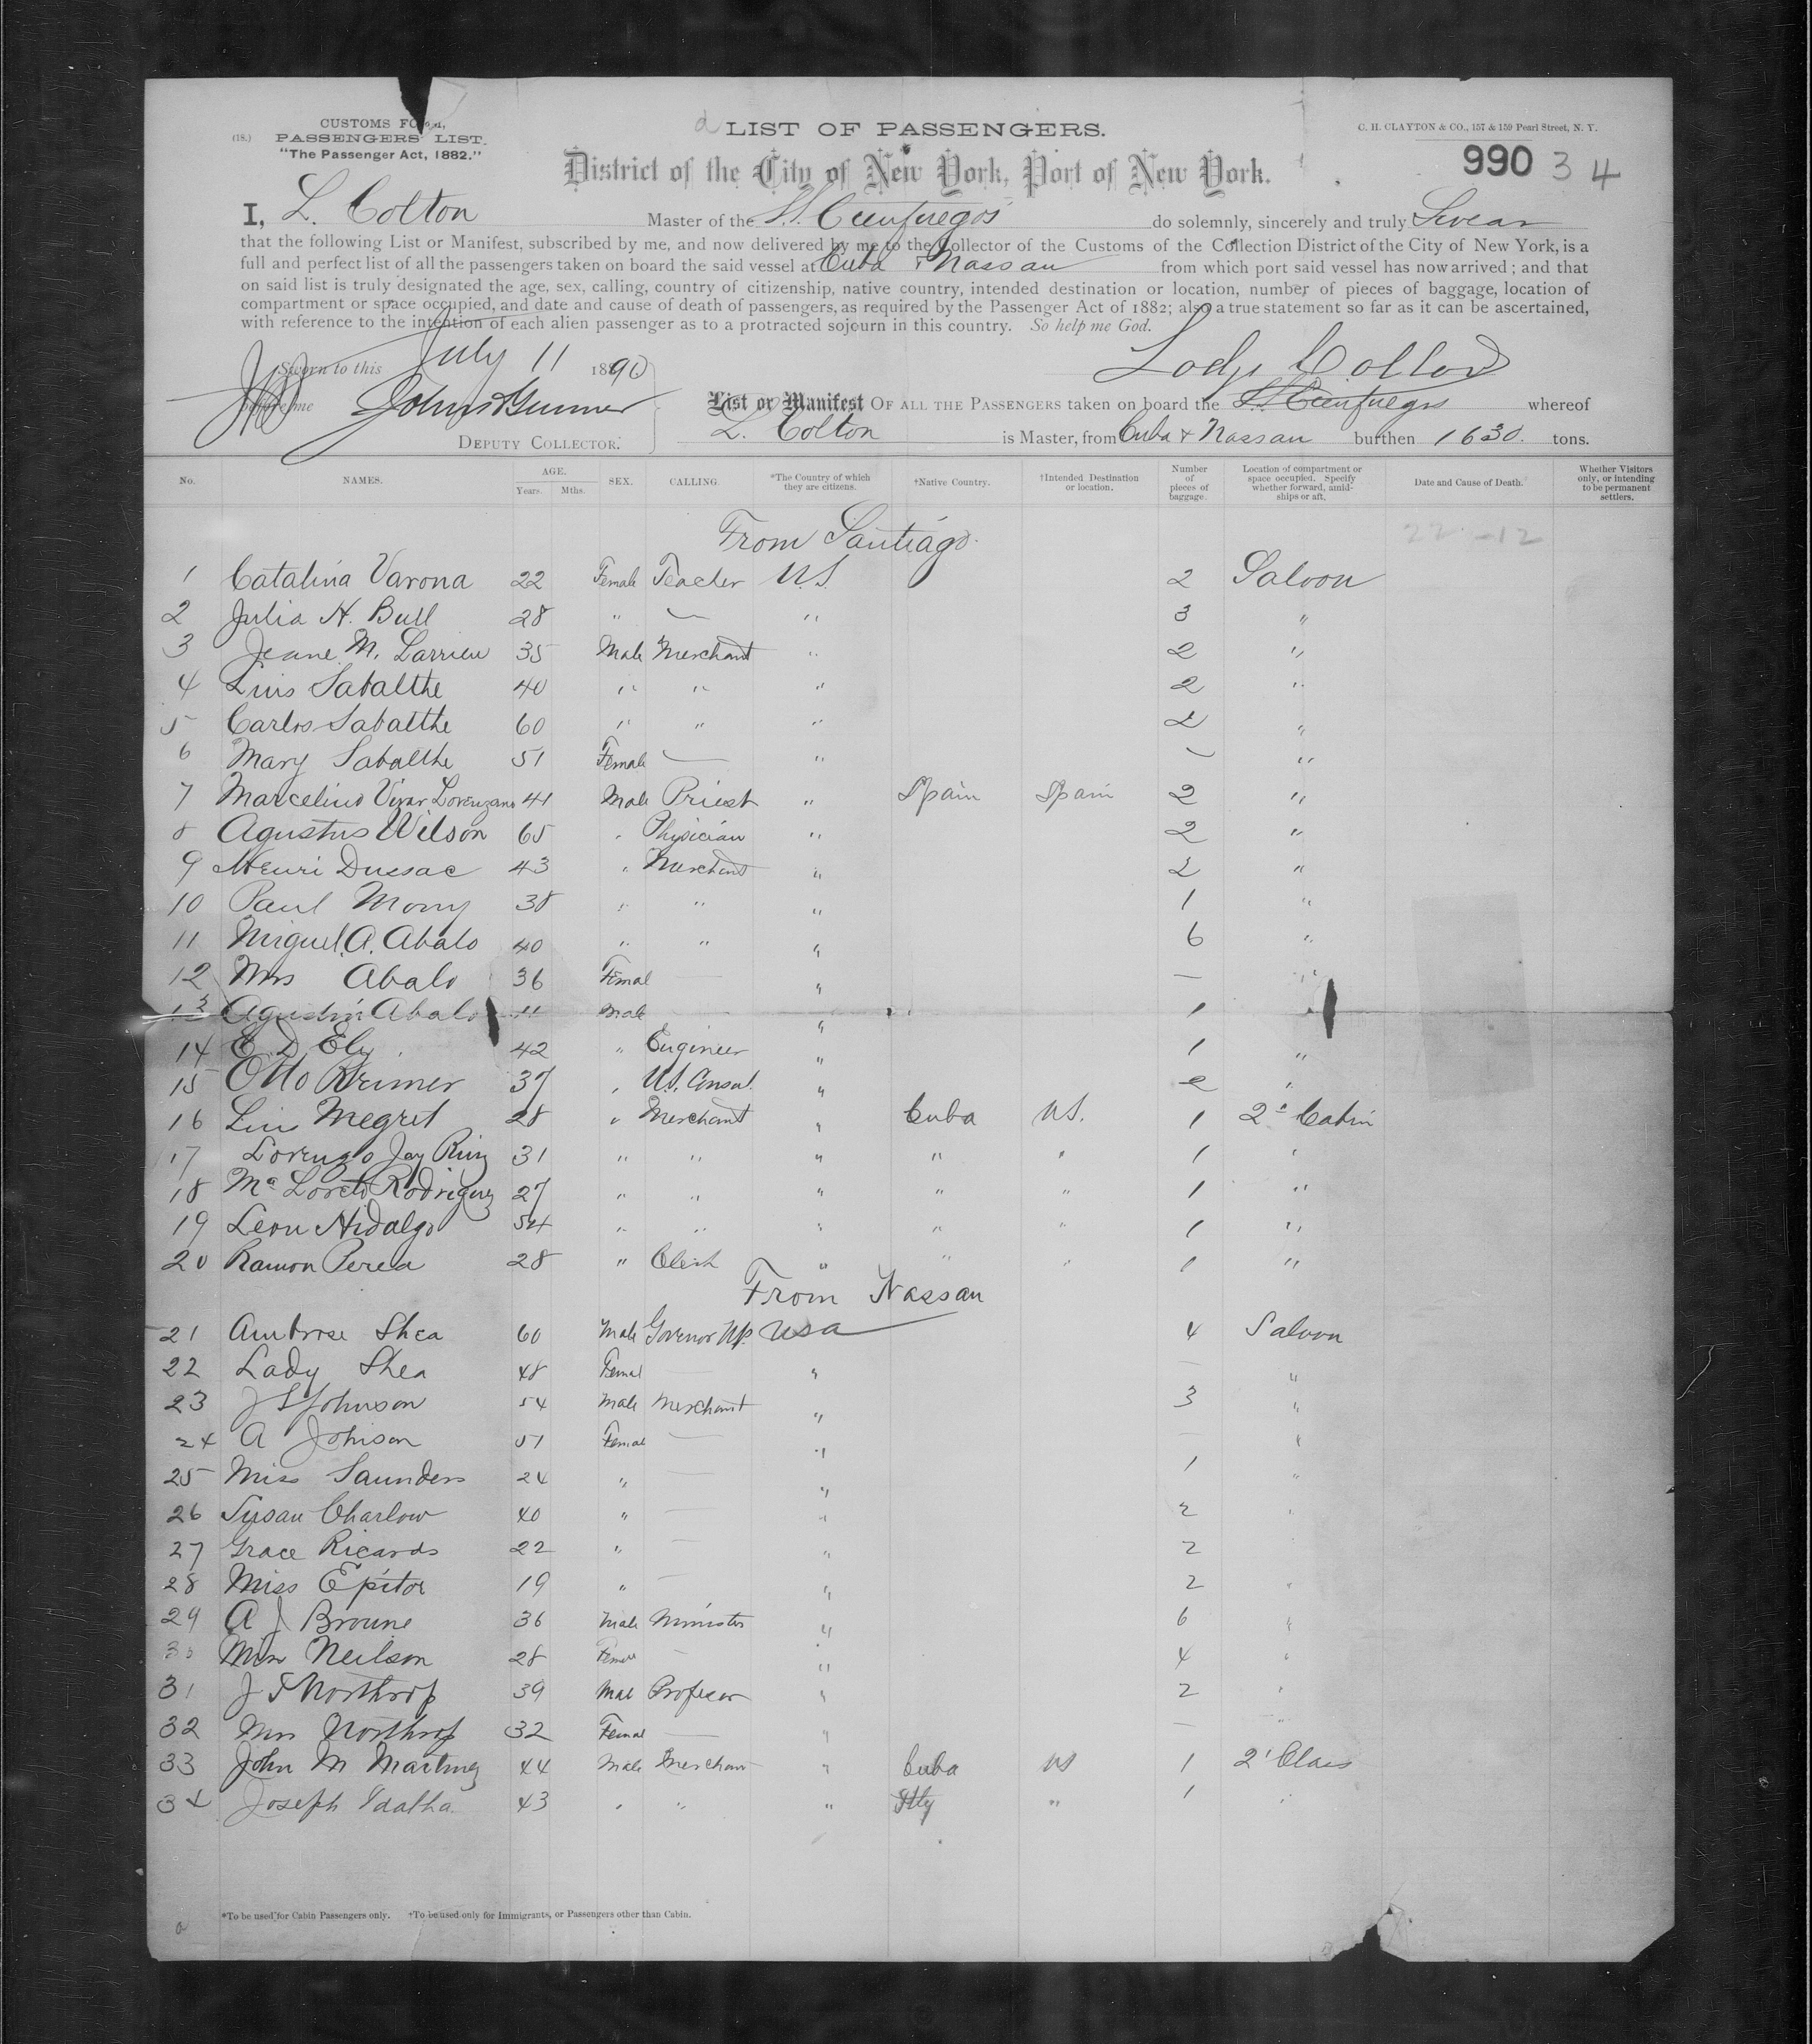 CUSTOMS FO
(18.) PASSENGERS' LIST.
"The Passenger Act, 1882."
LIST OF PASSENGERS.
C. H. CLAYTON & CO., 157 & 159 Pearl Street, N. Y.
990 34
District of the City of New York, Port of New York.
I, L. Colton Master of the S.S. Cienfuegos do solemnly, sincerely and truly Swear
that the following List or Manifest, subscribed by me, and now delivered by me to the Collector of the Customs of the Collection District of the City of New York, is a
full and perfect list of all the passengers taken on board the said vessel at Cuba & Nassau from which port said vessel has now arrived; and that
on said list is truly designated the age, sex, calling, country of citizenship, native country, intended destination or location, number of pieces of baggage, location of
compartment or space occupied, and date and cause of death of passengers, as required by the Passenger Act of 1882; also a true statement so far as it can be ascertained,
with reference to the intention of each alien passenger as to a protracted sojourn in this country. So help me God.
Sworn to this July 11 1890
Colton
before me
DEPUTY COLLECTOR.
List or Manifest OF ALL THE PASSENGERS taken on board the S.S. Cienfuegos whereof
L. Colton is Master, from Cuba & Nassau burthen 1630. tons.
No. NAMES. AGE. Years. Mths. SEX. CALLING. *The Country of which they are citizens. †Native Country. †Intended Destination or location. Number of pieces of baggage. Location of compartment or space occupied. Specify whether forward, amidships or aft. Date and Cause of Death. Whether Visitors only, or intending to be permanent settlers.
From Santiago.
22-12
1 Catalina Varona 22 Female Teacher U.S. 2 Saloon
2 Julia H. Bull 28 " — " 3 "
3 Jeane M. Larrieu 35 Male Merchant " 2 "
4 Luis Sabalthe 40 " " " 2 "
5 Carlos Sabalthe 60 " " " 2 "
6 Mary Sabalthe 51 Female — " — "
7 Marcelino Vivar Lorenzana 41 Male Priest " Spain Spain 2 "
8 Agustus Wilson 65 " Physician " 2 "
9 Henri Dussac 43 " Merchant " 2 "
10 Paul Mony 38 " " " 1 "
11 Miguel A. Abalo 40 " " " 6 "
12 Mrs Abalo 36 Femal — " — "
13 Agustin Abalo 11 Male — " 1
14 E. D. Ely 42 " Engineer " 1 "
15 Otto Reimer 37 " U.S. Consul. " 2 "
16 Luis Megret 28 " Merchant " Cuba US. 1 2d Cabin
17 Lorenzo Jay Ruiz 31 " " " " " 1 "
18 Ma Loreto Rodriguez 27 " " " " " 1 "
19 Leon Hidalgo 54 " " " " " 1 "
20 Ramon Perea 28 " Clerk " " " 1 "
From Nassau
21 Ambrose Shea 60 Male Govenor NP. USA 4 Saloon
22 Lady Shea 48 Femal — " — "
23 J S Johnson 54 Male Merchant " 3 "
24 A Johnson 51 Femal — " — "
25 Miss Saunders 24 " " 1 "
26 Susan Charlow 40 " — " 2 "
27 Grace Ricards 22 " — " 2
28 Miss Epitor 19 " — " 2 "
29 A J Browne 36 Male Minister " 6 "
30 Neilson 28 Femal — " 4 "
31 J I Northrop 39 Mal Profesor " 2 "
32 Mrs Northrop 32 Femal — " — "
33 John M Martinez 44 Male Merchant " Cuba US 1 2' Class
34 Joseph 43 " " " Itly " 1 "
*To be used for Cabin Passengers only. †To be used only for Immigrants, or Passengers other than Cabin.